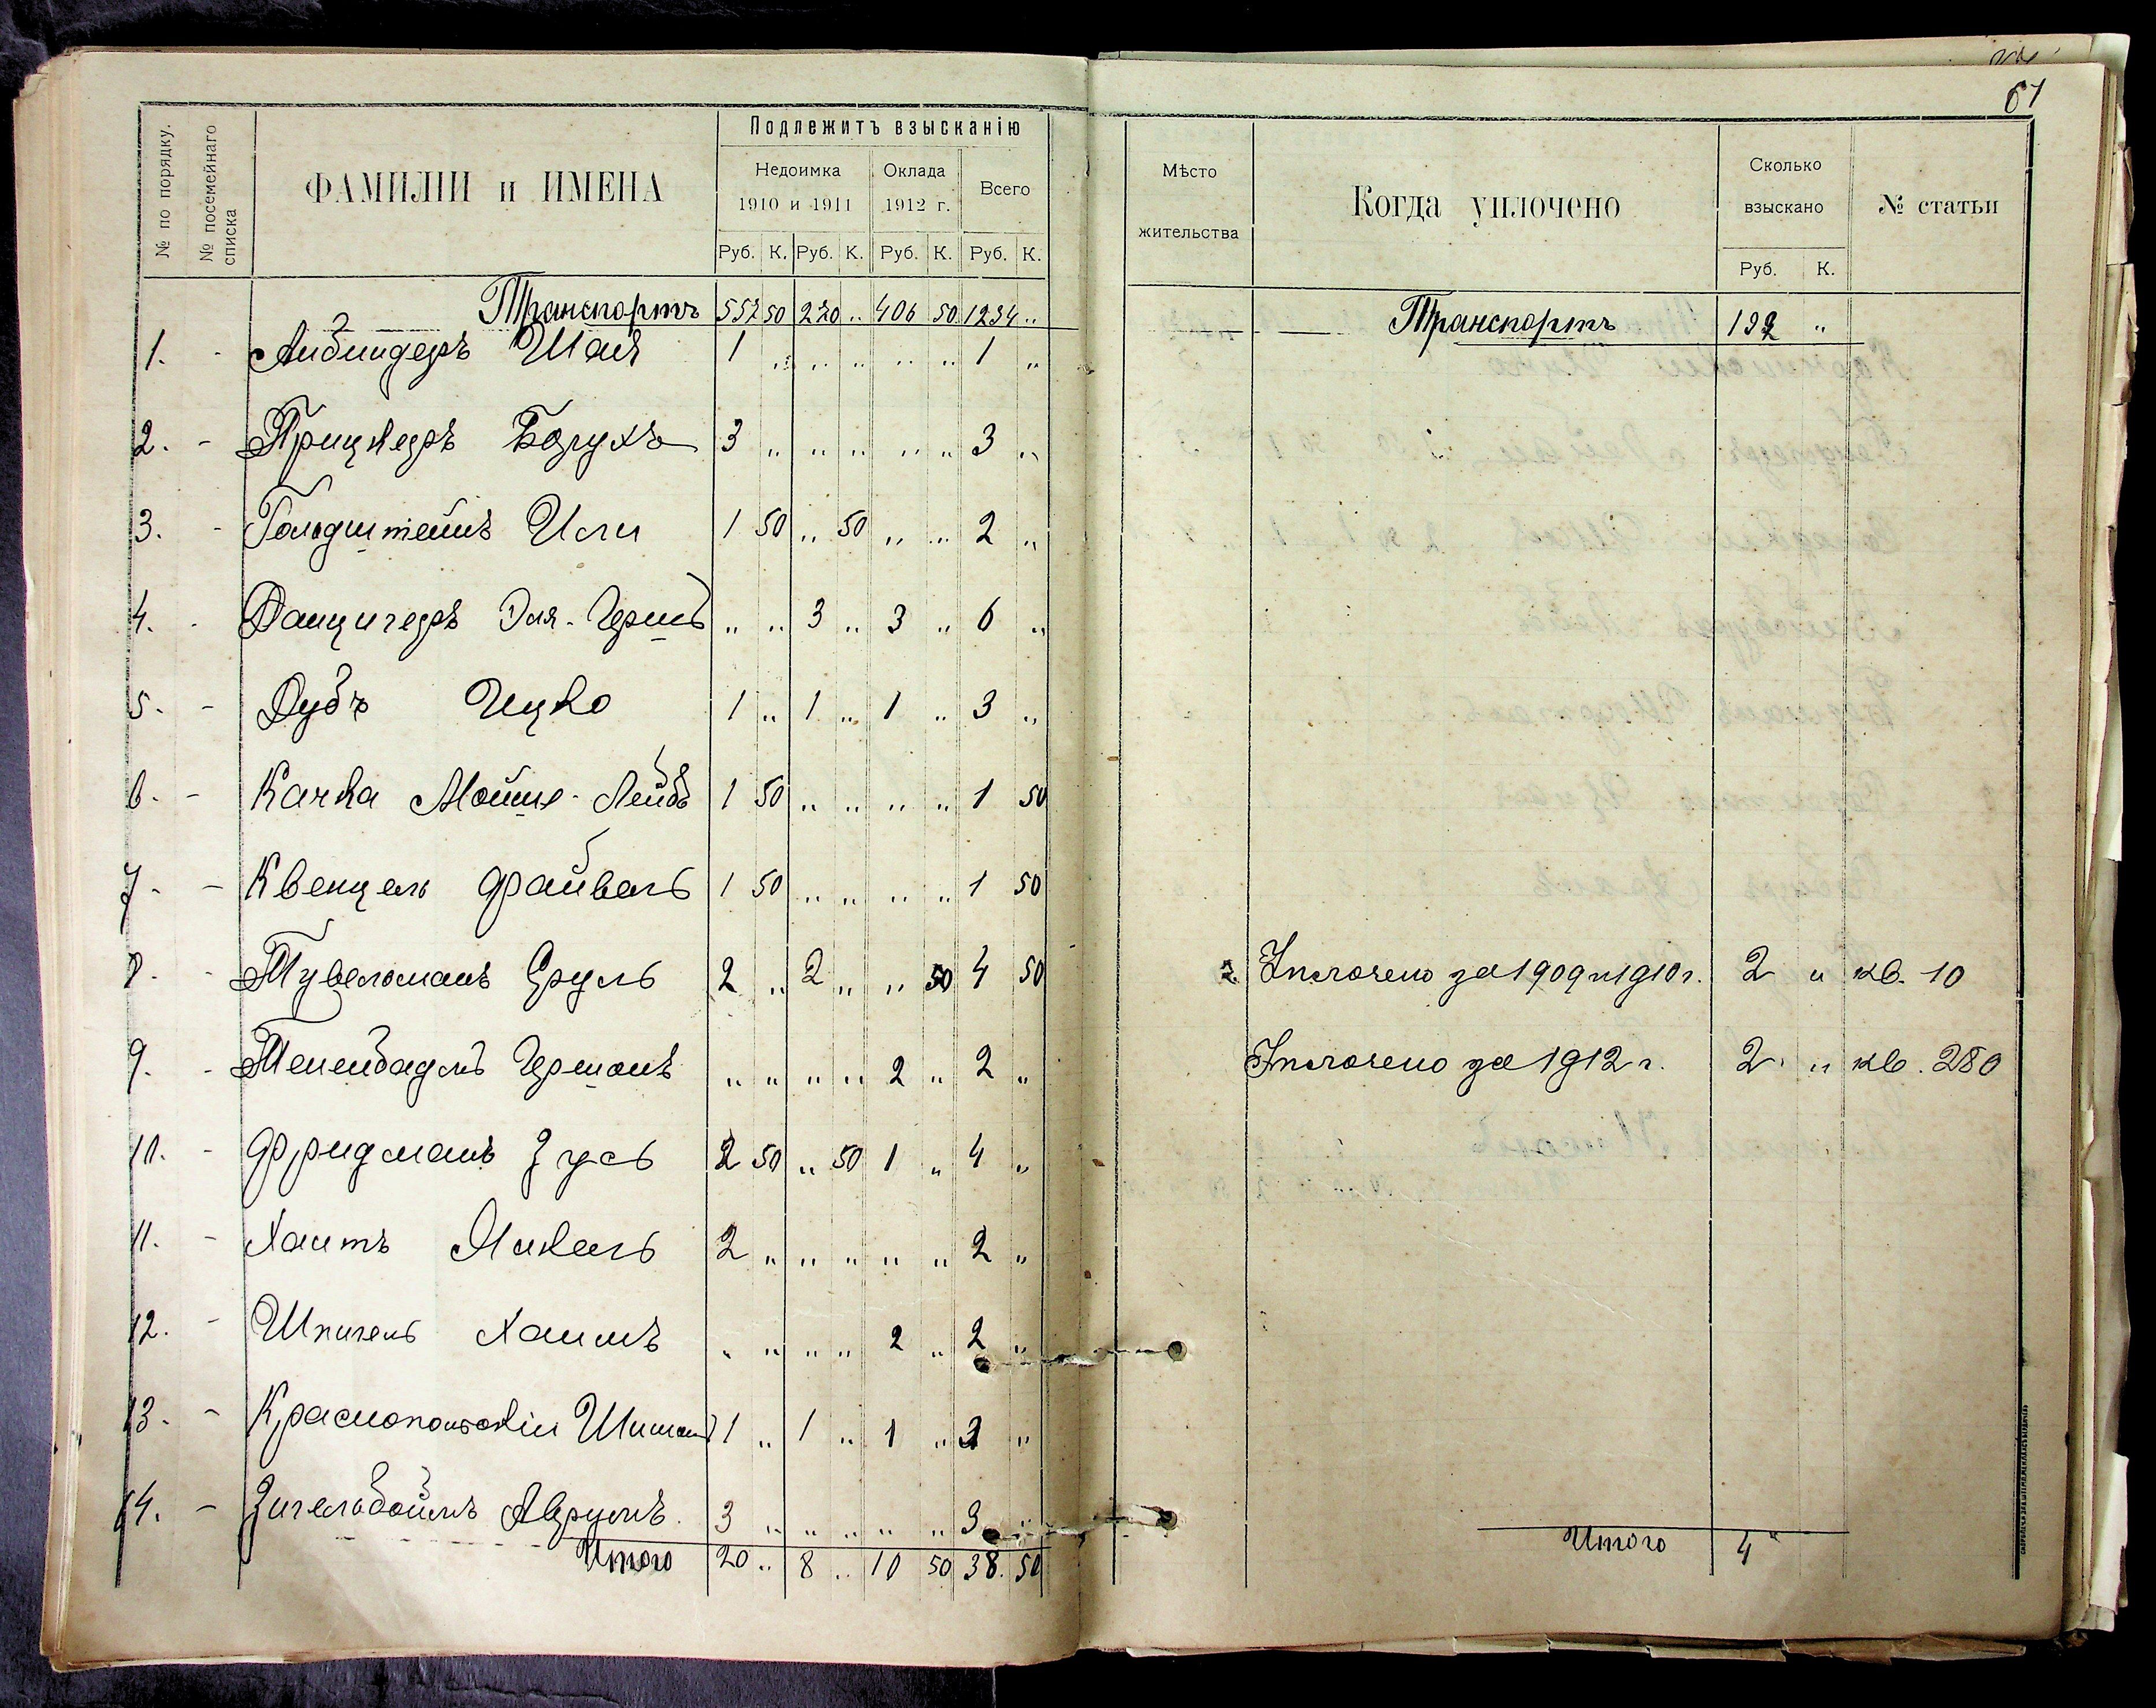 61
№ по порядку.
№ посемейнаго списка
ФАМИЛІИ и ИМЕНА
Подлежитъ взысканію
Недоимка 1910 и 1911
Оклада 1912 г.
Всего
Руб. К. Руб. К. Руб. К. Руб. К.
Мѣсто жительства
Когда уплочено
Сколько взыскано
Руб. К.
№ статьи
Транспортъ 557 50 220 " 406 50 1234 "
Транспортъ 192 "
1. - Айбиндеръ Шая 1 " " " " " 1 "
2. - Прицкеръ Борухъ 3 " " " " " 3 "
3. - Гольдштейнъ Или 1 50 " 50 " " 2 "
4. - Данцигеръ Эля-Гершъ " " 3 " 3 " 6 "
5. - Дубъ Ицко 1 " 1 " 1 " 3 "
6. - Качка Мойше-Лейбъ 1 50 " " " " 1 50
7. - Квенцель Файвель 1 50 " " " " 1 50
8. - Тувельманъ Сруль 2 " 2 " " 50 4 50 Уплочено за 1909 и 1910 г. 2 " кв. 10
9. - Тененбаумъ Гершонъ " " " " 2 " 2 " Уплочено за 1912 г. 2 " кв. 280
10. - Фридманъ Зусь 2 50 " 50 1 " 4 "
11. - Хаитъ Янкель 2 " " " " " 2 "
12. - Шпигель Хаимъ " " " " 2 " 2 "
13. - Краснопольскій 1 " 1 " 1 " 3 "
14. - Зигельбоймъ Аврумъ. 3 " " " " " 3 "
Итого 20 " 8 " 10 50 38. 50
Итого 4 "